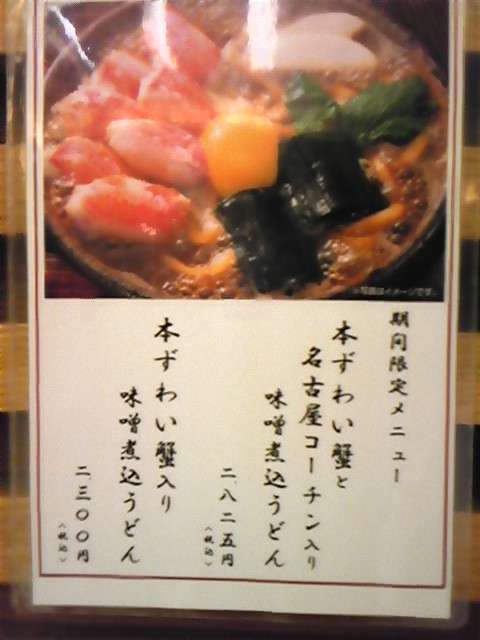 ※写真はイメージです。
期間限定メニュー
本ずわい蟹と
名古屋コーチン入り
味噌煮込うどん
二、八二五円
（税込）
本ずわい蟹入り
味噌煮込うどん
二、三〇〇円
（税込）